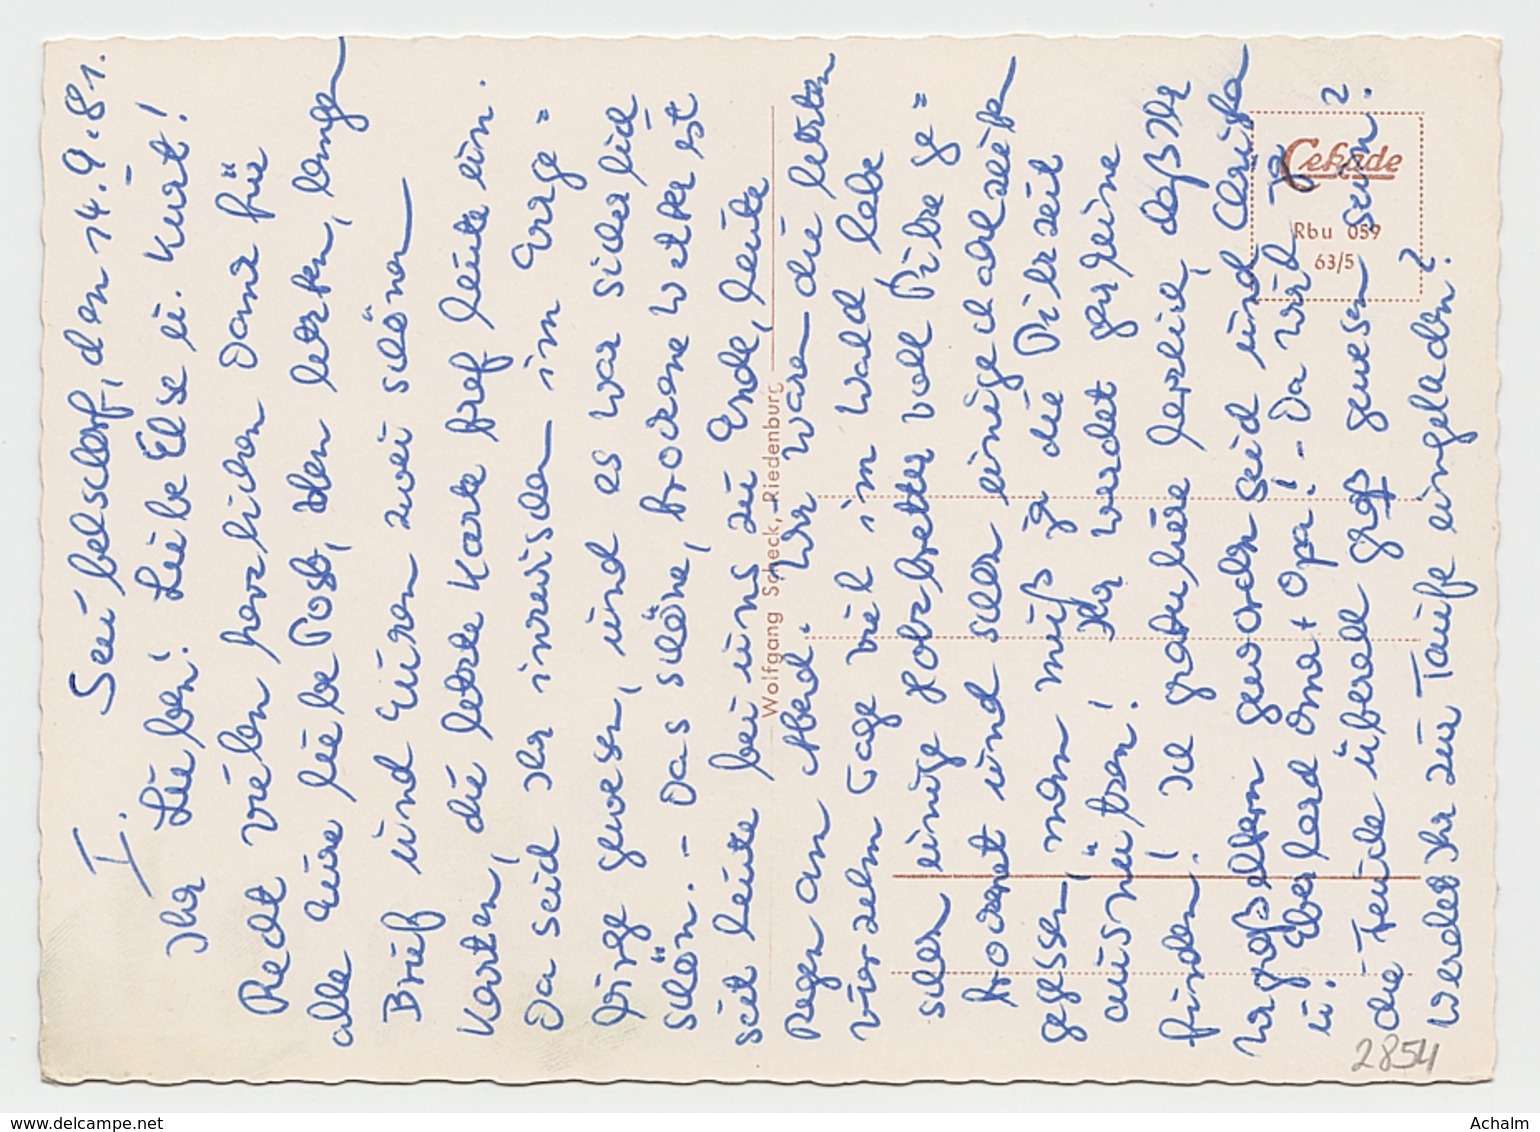 I. Seubelsdorf, den 14.9.81.
Ihr Lieben! Liebe Else u. Kurt!
Recht vielen herzlichen Dank für
alle Eure liebe Post, den letzten, langen
Brief und Euren zwei schönen
Karten, die letzte Karte traf heute ein.
Da seid Ihr inzwischen im Erzge=
birge gewesen, und es war sicherlich
schön. - Das schöne, trockene Wetter ist
seit heute bei uns zu Ende, heute
Regen am Abend. Wir waren die letzten
vierzehn Tage viel im Wald habe
schon einige Holzbretter voll Pilze ge=
trocknet und schon einige Mahlzeiten
gegessen, man muß ja die Pilzzeit
ausnützen! Ihr werdet gar keine
finden! Ich gratuliere herzlich, daß Ihr
Urgroßeltern geworden seid und Christa
u. Eberhard Oma + Opa! - Da wird ja
die Freude überall groß gewesen sein. 2.
Werdet Ihr zur Taufe eingeladen?
Wolfgang Scheck, Riedenburg
Cekade
Rbu 059
63/5
2854
delcampe.net
Achalm